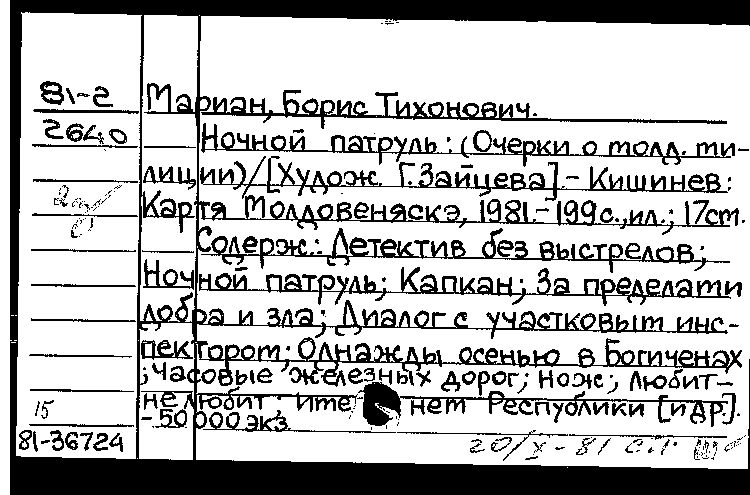 81-2 Мариан, Борис Тихонович.
2640 Ночной патруль: (Очерки о молд. ми-
лиции)/[Худож. Г.Зайцева].- Кишинев:
Картя Молдовеняскэ, 1981.-199с.,ил.; 17см.
Содерж.: Детектив без выстрелов;
Ночной патруль; Капкан; За пределами
добра и зла; Диалог с участковым инс-
пектором; Однажды осенью в Богиченах
; Часовые железных дорог; Нож; Любит-
15 не любит; Име нем Республики [и др].
- 50000 экз
81-36724 20/X-81